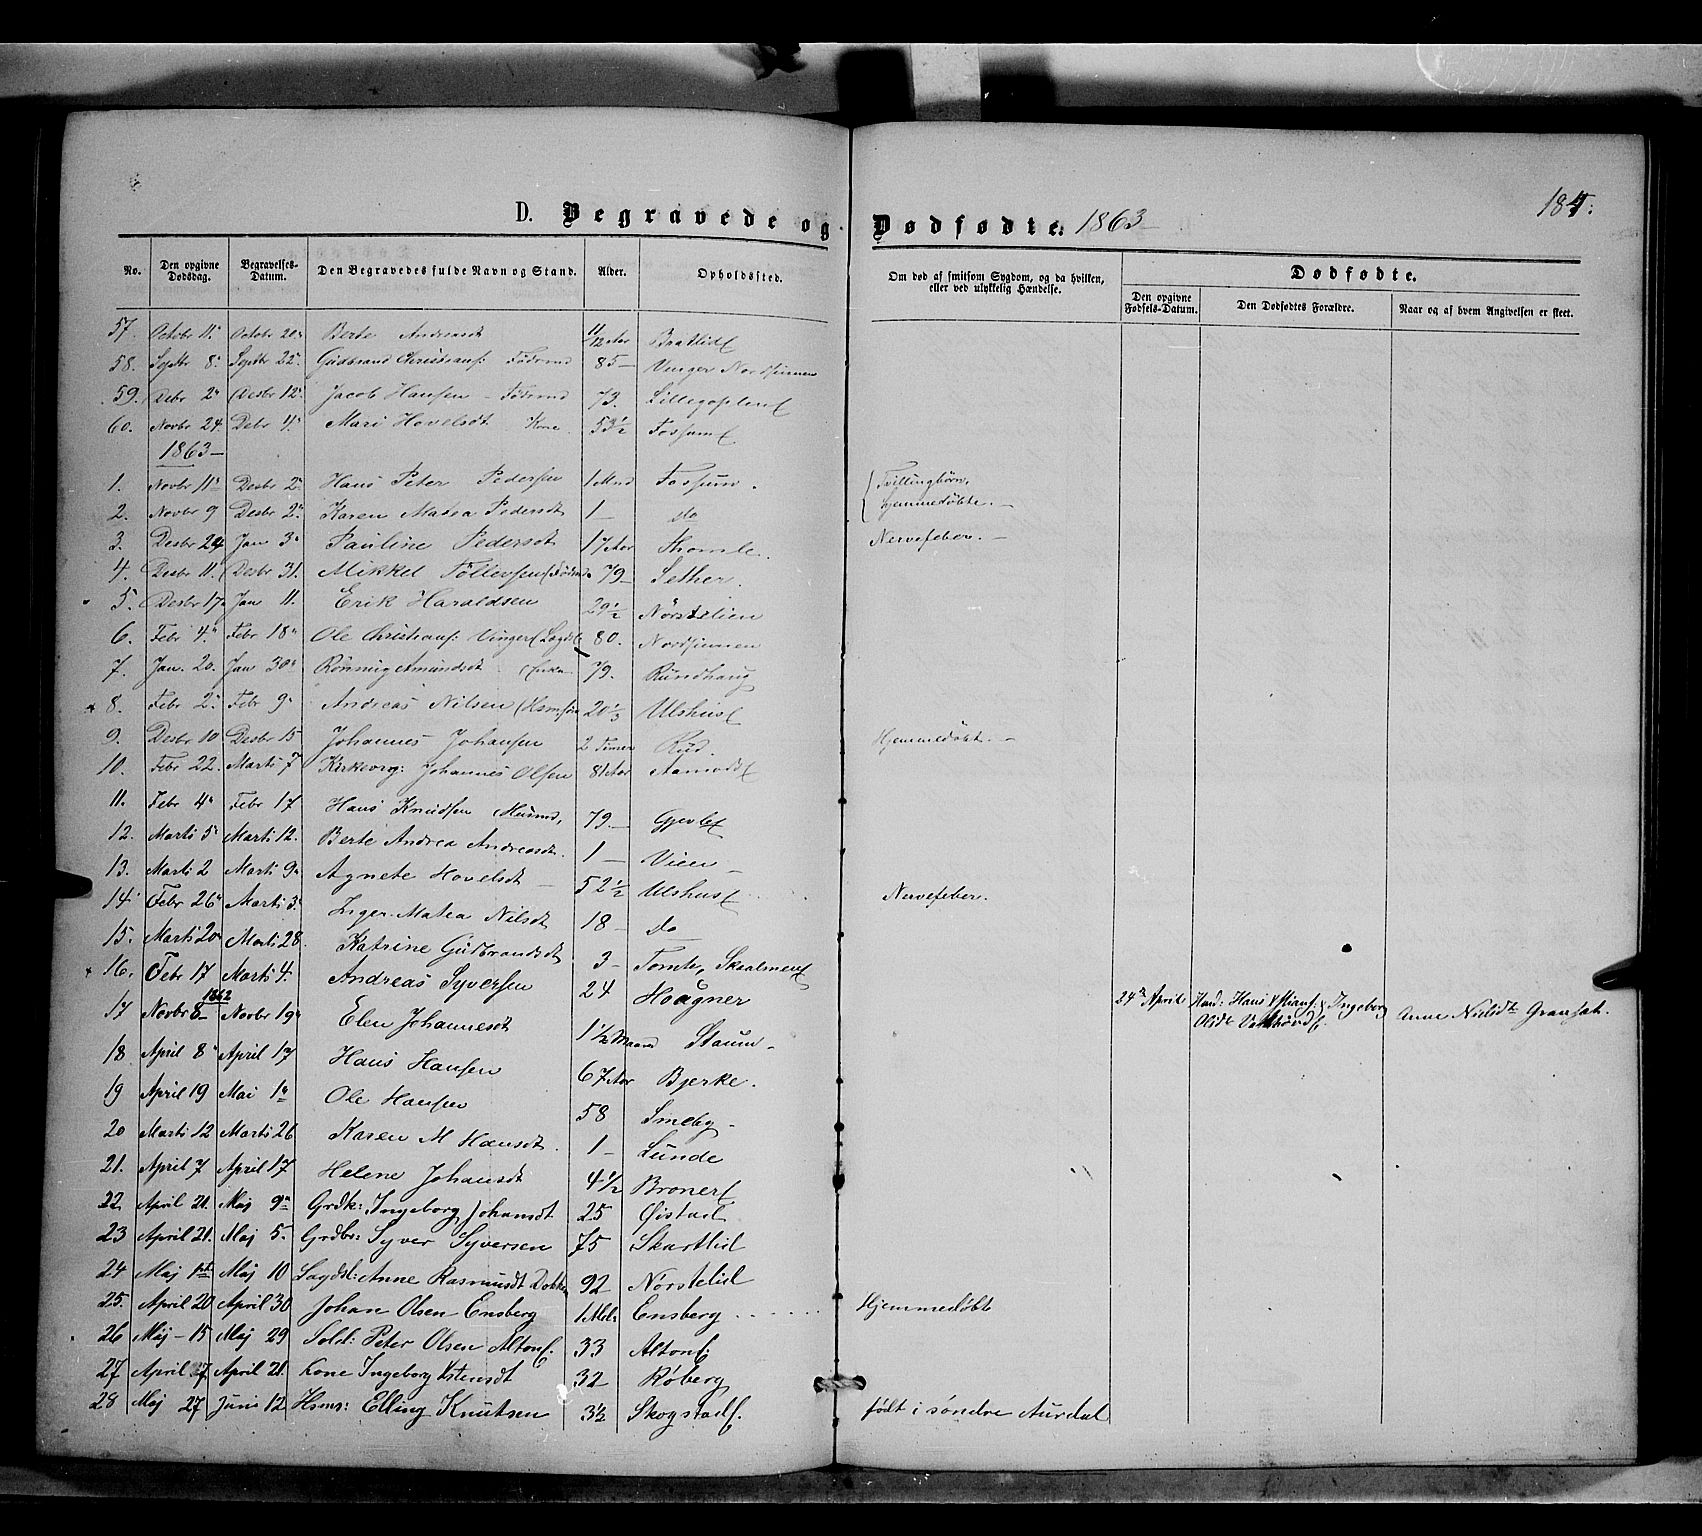 184:
D. Begravede og Dødfødte: 1863
No. Den opgivne Dødsdag. Begravelses-Datum. Den Begravedes fulde Navn og Stand. Alder. Opholdssted. Om død af smitsom Sygdom, og da hvilken, eller ved ulykkelig Hændelse. Dødfødte. Den opgivne Fødsels-Datum. Den Dødfødtes Forældre. Naar og af hvem Angivelsen er skeet.
57. Octobr 11. Octobr 20. Berte Andreasdt 11/12 Aar Bratlid
58. Septbr 8. Septbr 22. Gudbrand Christians: Fødrmd 85 – Vinger Nordsinnen
59. Debr 2 Desbr 12. Jacob Hansen – Fødrmd 73.
60. Novbr 24. Debr 4. Mari Hovelsdt Kone 53½ Fossum
1863 –
1. Novbr 11 Desbr 2. Hans Peter Pedersen 1 Mnd Fossum. Tvillingbørn,
2. Novbr 9 Desbr 2. Karen Matea Pedersdt 1 – do hjemmedøbte. –
3. Desbr 24 Jan 3 Pauline Pedersdt 17 Aar Thomle. Nervefeber. –
4. Desbr 11. Desbr 31. Mikkel Tollevsen Fødrmd 79 – Sether.
5. Desbr 17 Jan 11. Erik Haraldsen 29½ Nørstelien
6. Febr 4. Febr 18 Ole Christians: Vinger 80. Nordsinnen
7. Jan. 20. Jan 30 Rønnug Amundsdt Enke 79. Rundhaug
8. Febr 2. Febr 9 Andreas Nilsen 20⅓ Ulshus
9. Desbr 10 Desbr 15 Johannes Johansen 2 Timer Rud. Hjemmedøbt. –
10. Febr 22. Marts 7 Kirkeverg: Johannes Olsen 81 Aar Aamodt
11. Febr 4 Febr 17 Hans Knudsen 79. – Gjevle
12. Marts 5 Marts 12. Berte Andrea Andreasdt. 1 – Vien –
13. Marts 2 Marts 9 Agnete Hovelsdt – 52½ Ulshus
14 Febr 26 Marts 3. Inger Matea Nilsdt 18 – do Nervefeber.
15. Marts 20 Marts 28. Katrine Gudbrandsdt 3 – Tomte, Skaalmene
16. Febr 17 Marts 4. Andreas Syversen 24 Haagner
17 Novbr 8 1862 Novbr 19 Elen Johannesdt 1½ Maaned Staum – 24de April Hmd: Hans Kstians: & Ingeborg Olsdt Anne Nielsdt Gransat.
18 April 8 April 17 Hans Hansen 67 Aar Bjerke.
19 April 19 Mai 1 Ole Hansen 58 Smeby –
20 Marts 12 Marts 26 Karen M Hansdt. 1 – Lunde
21. April 7 April 17 Helene Johansdt 4½ Broner
22 April 21. Maj 9 Grdk: Ingeborg Johansdt 25 Øistad
23 April 21. Maj 5. Grdbr: Syver Syversen 75 Skartlid
24 Maj 1st Maj 10 Lægdsl: Anne Rasmusdt Dokken 92 Nørstelid
25. April 20 April 30 Johan Olsen Ensberg 1 Md: Ensberg Hjemmedøbt
26 Maj – 15 Maj 29 Sold: Peter Olsen Alton. 33 Alton
27 April 17 April 21. Kone Ingeborg Ostensdt 32 Røberg
28 Maj 27 Juni 12 Hsms: Elling Knutsen 3½ Skogstad. født i søndre Aurdal